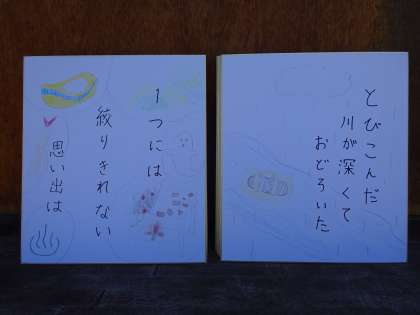 とびこんだ
川が深くて
おどろいた
1つには
絞りきれない
思い出は